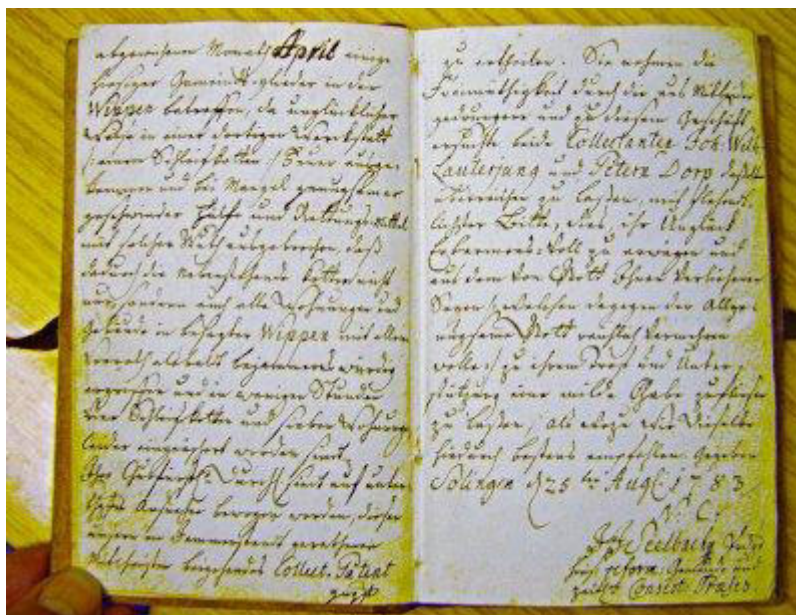 abgewichenen Monats April einige
hiesiger Gemeindsglieder in der
Wippen betroffen, da unglücklicher
Weise in einer dortigen Werkstatt
/: einem Schleifkotten :/ Feuer ausge-
kommen und bei Mangel genugsamer
geschwinder Hülfe und Rettungs-Mittel
mit solcher Wuth ausgebrochen, daß
dadurch die nebenstehende Kotten nicht
nur, sondern auch alle Wohnungen und
Gebäude in besagter Wippen mit allem
Vorrath
ergriffen und in wenigen Stunden
Schleifkotten und sieben Wohnungen
leider eingeäschert worden sind.
Ihro Churfürstl. Durchl. sind auf unter-
bewogen worden, diesen
in Jammerstand gerathenen
Collect-Patent
zu ertheilen. Sie nehmen die
Freimüthigkeit durch die aus Mitleiden
gedrungene und zu diesem Geschäft
ersuchte beide Collectanten Joh. Wilh.
Lauterjung und Petern Dorp
zu lassen, mit flehend-
lichster Bitte, dies ihr Unglück
Erbarmens-voll zu erwägen und
aus dem von Gott Ihnen verliehenen
Segen /: welchen dagegen der Allge-
nugsame Gott reichlich vermehren
wolle :/ zu ihrem Trost und Unter-
stützung eine milde Gabe zufließen
zu lassen, als wozu wir dieselbe
hiedurch bestens empfohlen. Gegeben
Solingen d 25ten Aug. 1783
Seelbach Pred.
hies. reform. Gemeinde und
zeitl. Consist. Präses.